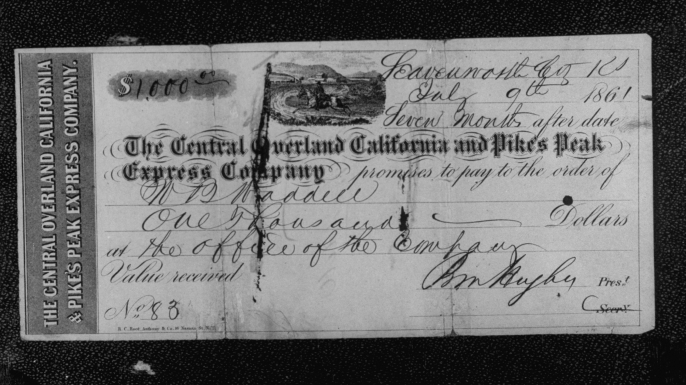 THE CENTRAL OVERLAND CALIFORNIA
& PIKE'S PEAK EXPRESS COMPANY.
$1,000 00
Leavenworth City Ks
July 9th 1861
Seven Months after date
The Central Overland California and Pike's Peak
Express Company promises to pay to the order of
W B Waddell
One Thousand Dollars
at the office of the Company
Value received
Pres.t
Secry.
No. 83